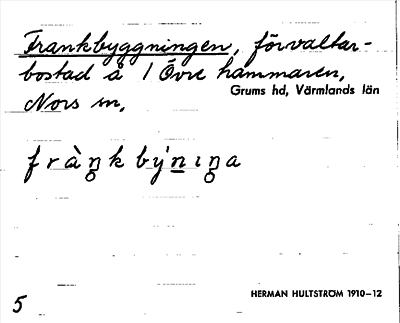 Frankbyggningen, förvaltar-
bostad å 1 Övre hammaren,
Nors sn,
Grums hd, Värmlands län
fràŋkbýnıŋa
HERMAN HULTSTRÖM 1910–12
5